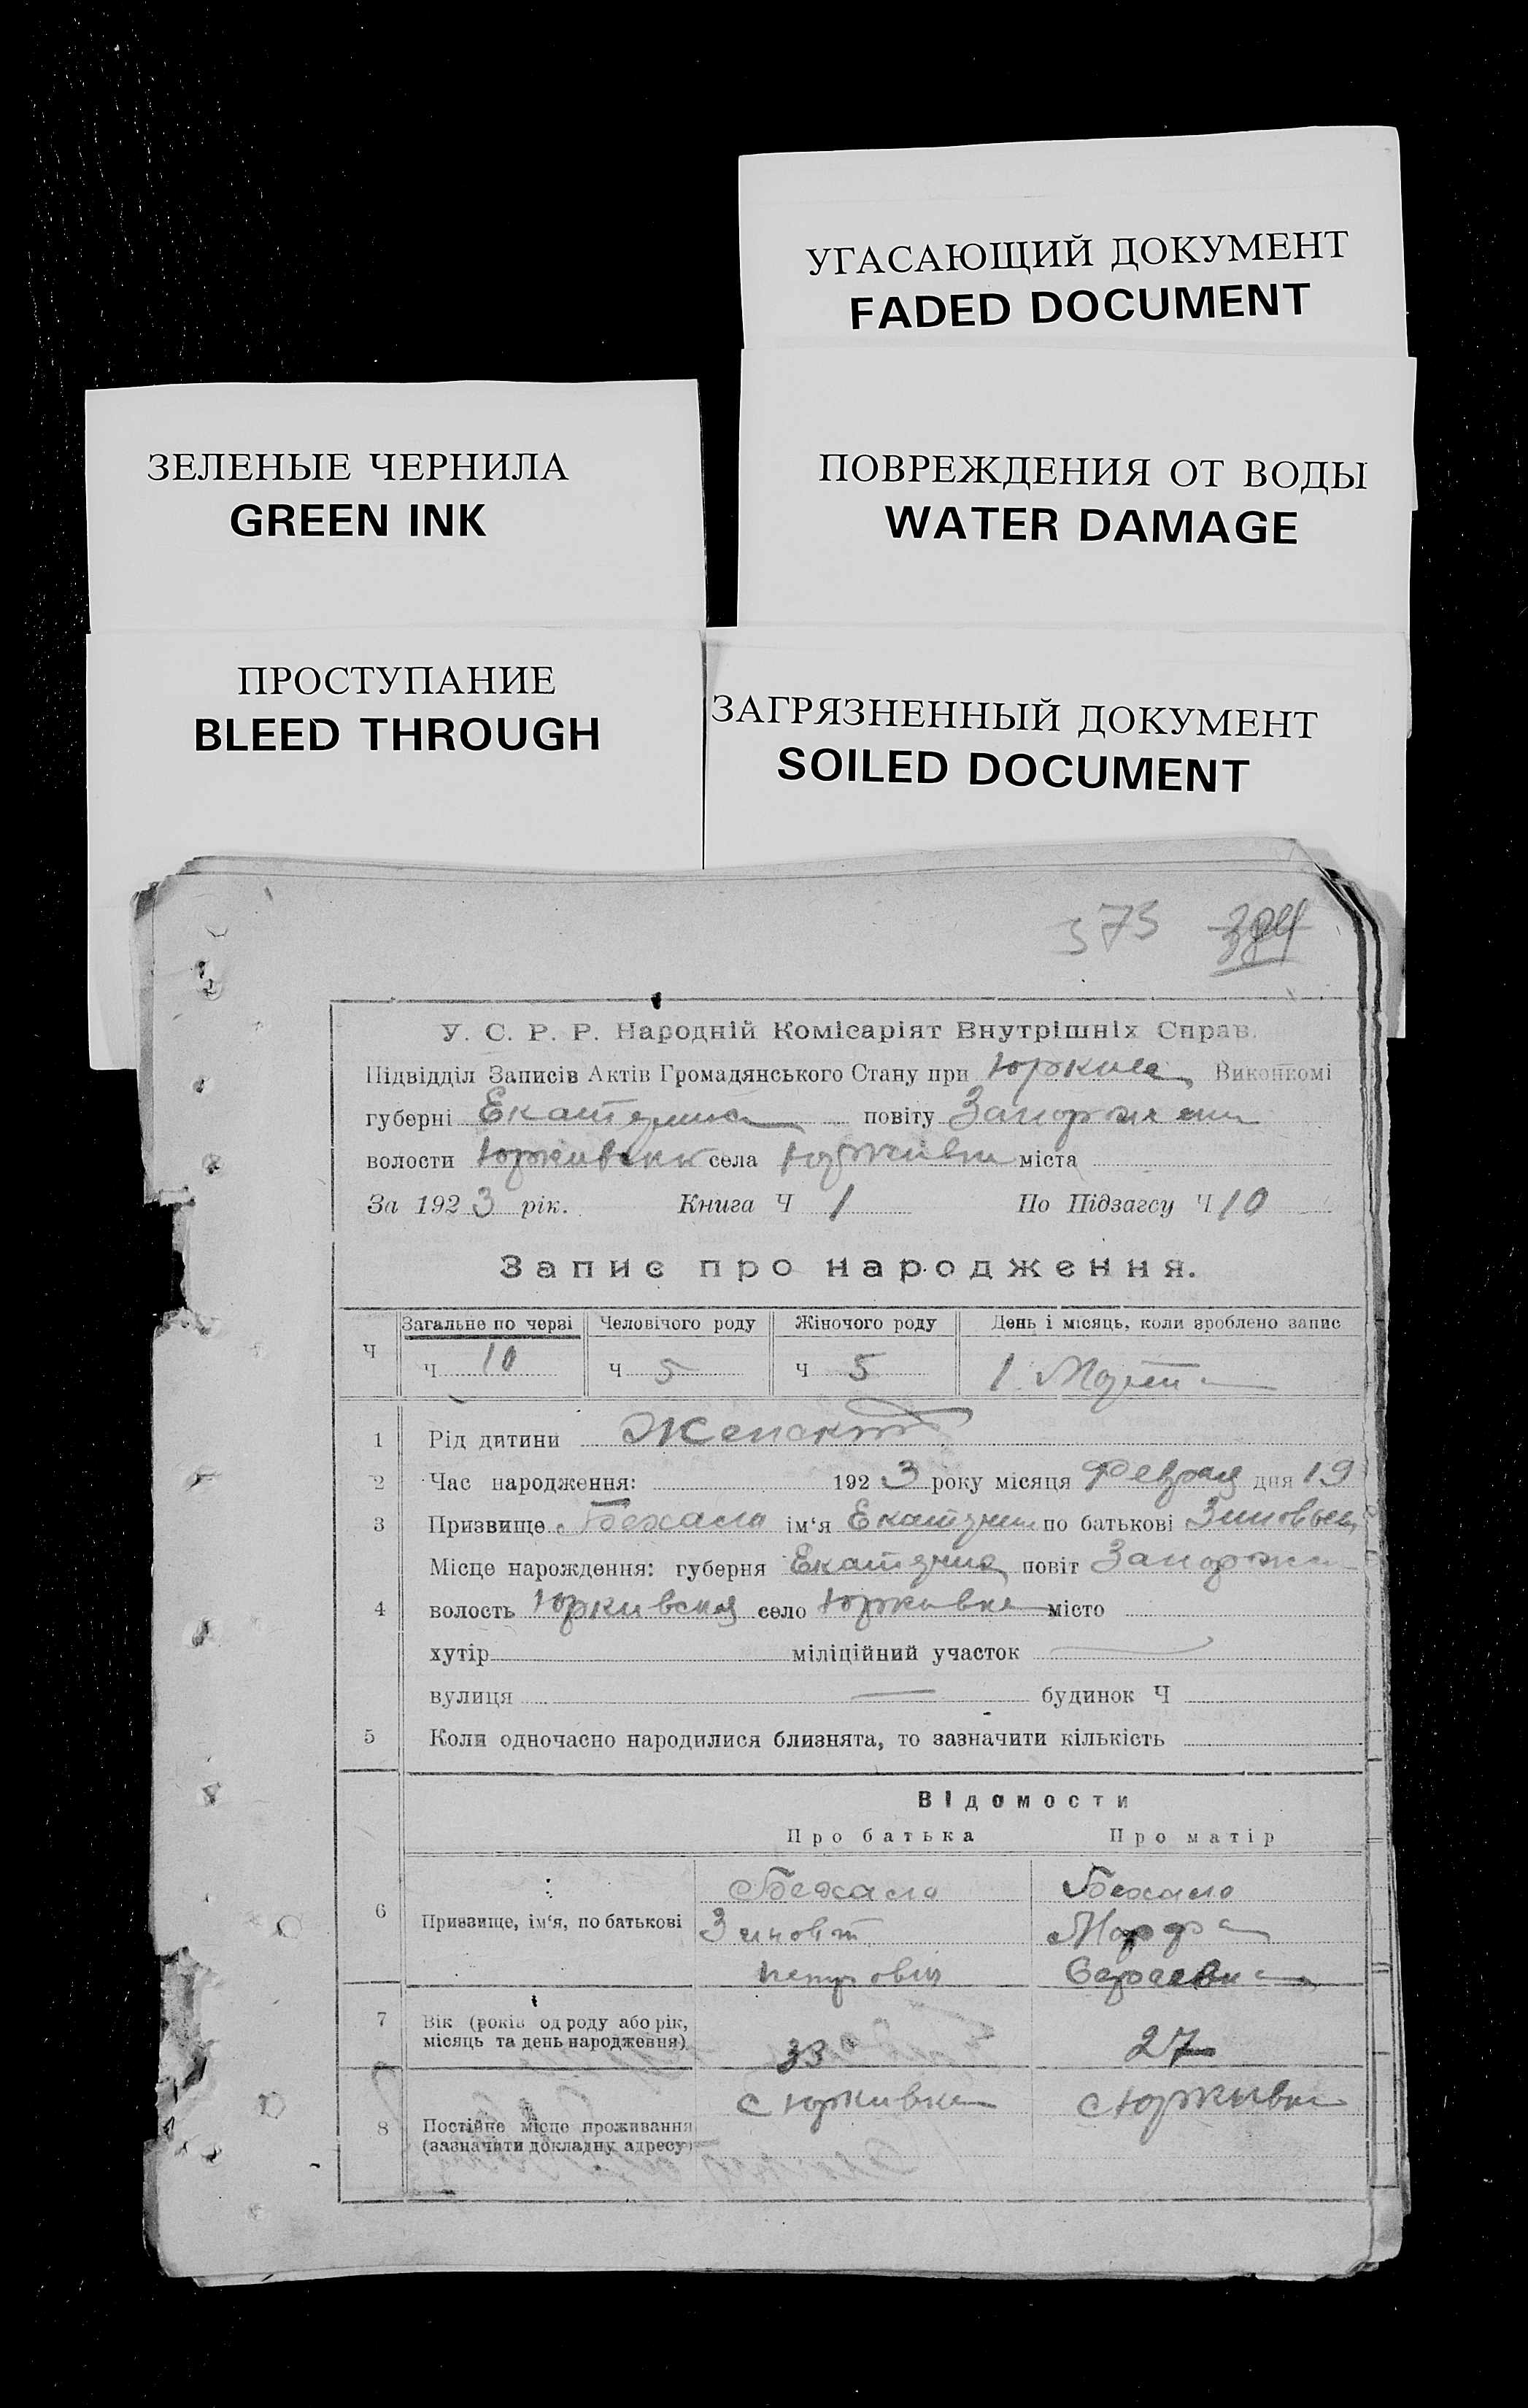 УГАСАЮЩИЙ ДОКУМЕНТ
FADED DOCUMENT
ЗЕЛЕНЫЕ ЧЕРНИЛА
GREEN INK
ПОВРЕЖДЕНИЯ ОТ ВОДЫ
WATER DAMAGE
ПРОСТУПАНИЕ
BLEED THROUGH
ЗАГРЯЗНЕННЫЙ ДОКУМЕНТ
SOILED DOCUMENT
373
У. С. Р. Р. Народній Комісаріят Внутрішніх Справ.
Підвідділ Записів Актів Громадянського Стану при Виконкомі
губерні повіту
волости села Юркивки міста
За 1923 рік. Книга Ч 1 По Підзагсу Ч 10
Запис про народження.
Ч Загальне по черзі Человічого роду Жіночого роду День і місяць, коли зроблено запис
Ч 10 Ч 5 Ч 5 1 Марта
1 Рід дитини Женский
2 Час народження: 1923 року місяця Февраля дня 19
3 Призвище ім‘я по батькові
Місце нарождення: губерня повіт
4 волость Юркивская село Юркивка місто
хутір міліційний участок
вулиця будинок Ч
5 Коли одночасно народилися близнята, то зазначити кількість
Відомости
Про батька Про матір
6 Призвище, ім‘я, по батькові
Зиновий Марфа
Петрович
7 Вік (років од роду або рік,
місяць та день народження) 33 27
8 Постійне місце проживання
(зазначити докладну адресу)
с Юркивка с Юркивка